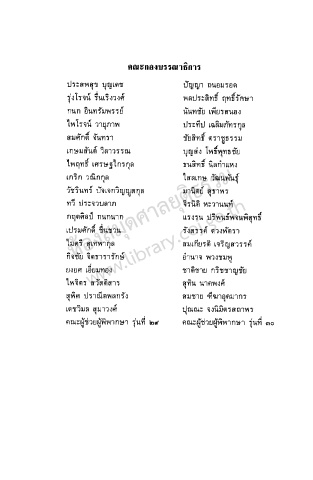 คณะกองบรรณาธิการ
ประสพสุข บุญเดช
รุ่งโรจน์ รื่นเริงวงศ์
กนก อินทรัมพรรย์
ไพโรจน์ วายุภาพ
สมศักดิ์ จันทรา
เกษมสันต์ วิลาวรรณ
ไพฤทธิ์ เศรษฐไกรกุล
เกริก วณิกกุล
วัชรินทร์ ปัจเจกวิญญูสกุล
ทวี ประจวบลาภ
กฤตศิลป์ กนกนาก
เปรมศักดิ์ ชื่นชวน
ไมตรี สุเทพากุล
กิจชัย จิตธารารักษ์
ยงยศ เอี่ยมทอง
ไพจิตร สวัสดิสาร
สุพิศ ปราณีตพลกรัง
เดชวิมล สุมาวงศ์
คณะผู้ช่วยผู้พิพากษา รุ่นที่ ๒๙
ปัญญา ถนอมรอด
พลประสิทธิ์ ฤทธิ์รักษา
นันทชัย เพียรสนอง
ประทีป เฉลิมภัทรกุล
ชัยสิทธิ์ ตราชูธรรม
บุญส่ง โพธิ์พุทธชัย
ธนสิทธิ์ นิลกำแหง
โสตเกษ วัฒนพันธุ์
มานิตย์ สุธาพร
จิรนิติ หะวานนท์
แรงรณ ปริพนธ์พจนพิสุทธิ์
รังสรรค์ ดวงพัตรา
สมเกียรติ เจริญสวรรค์
อำนาจ พวงชมพู
ชาติชาย กริชชาญชัย
สุทิน นาคพงศ์
สมชาย ฑีฆาอุตมากร
ปุณณะ จงนิมิตรสถาพร
คณะผู้ช่วยผู้พิพากษา รุ่นที่ ๓๐